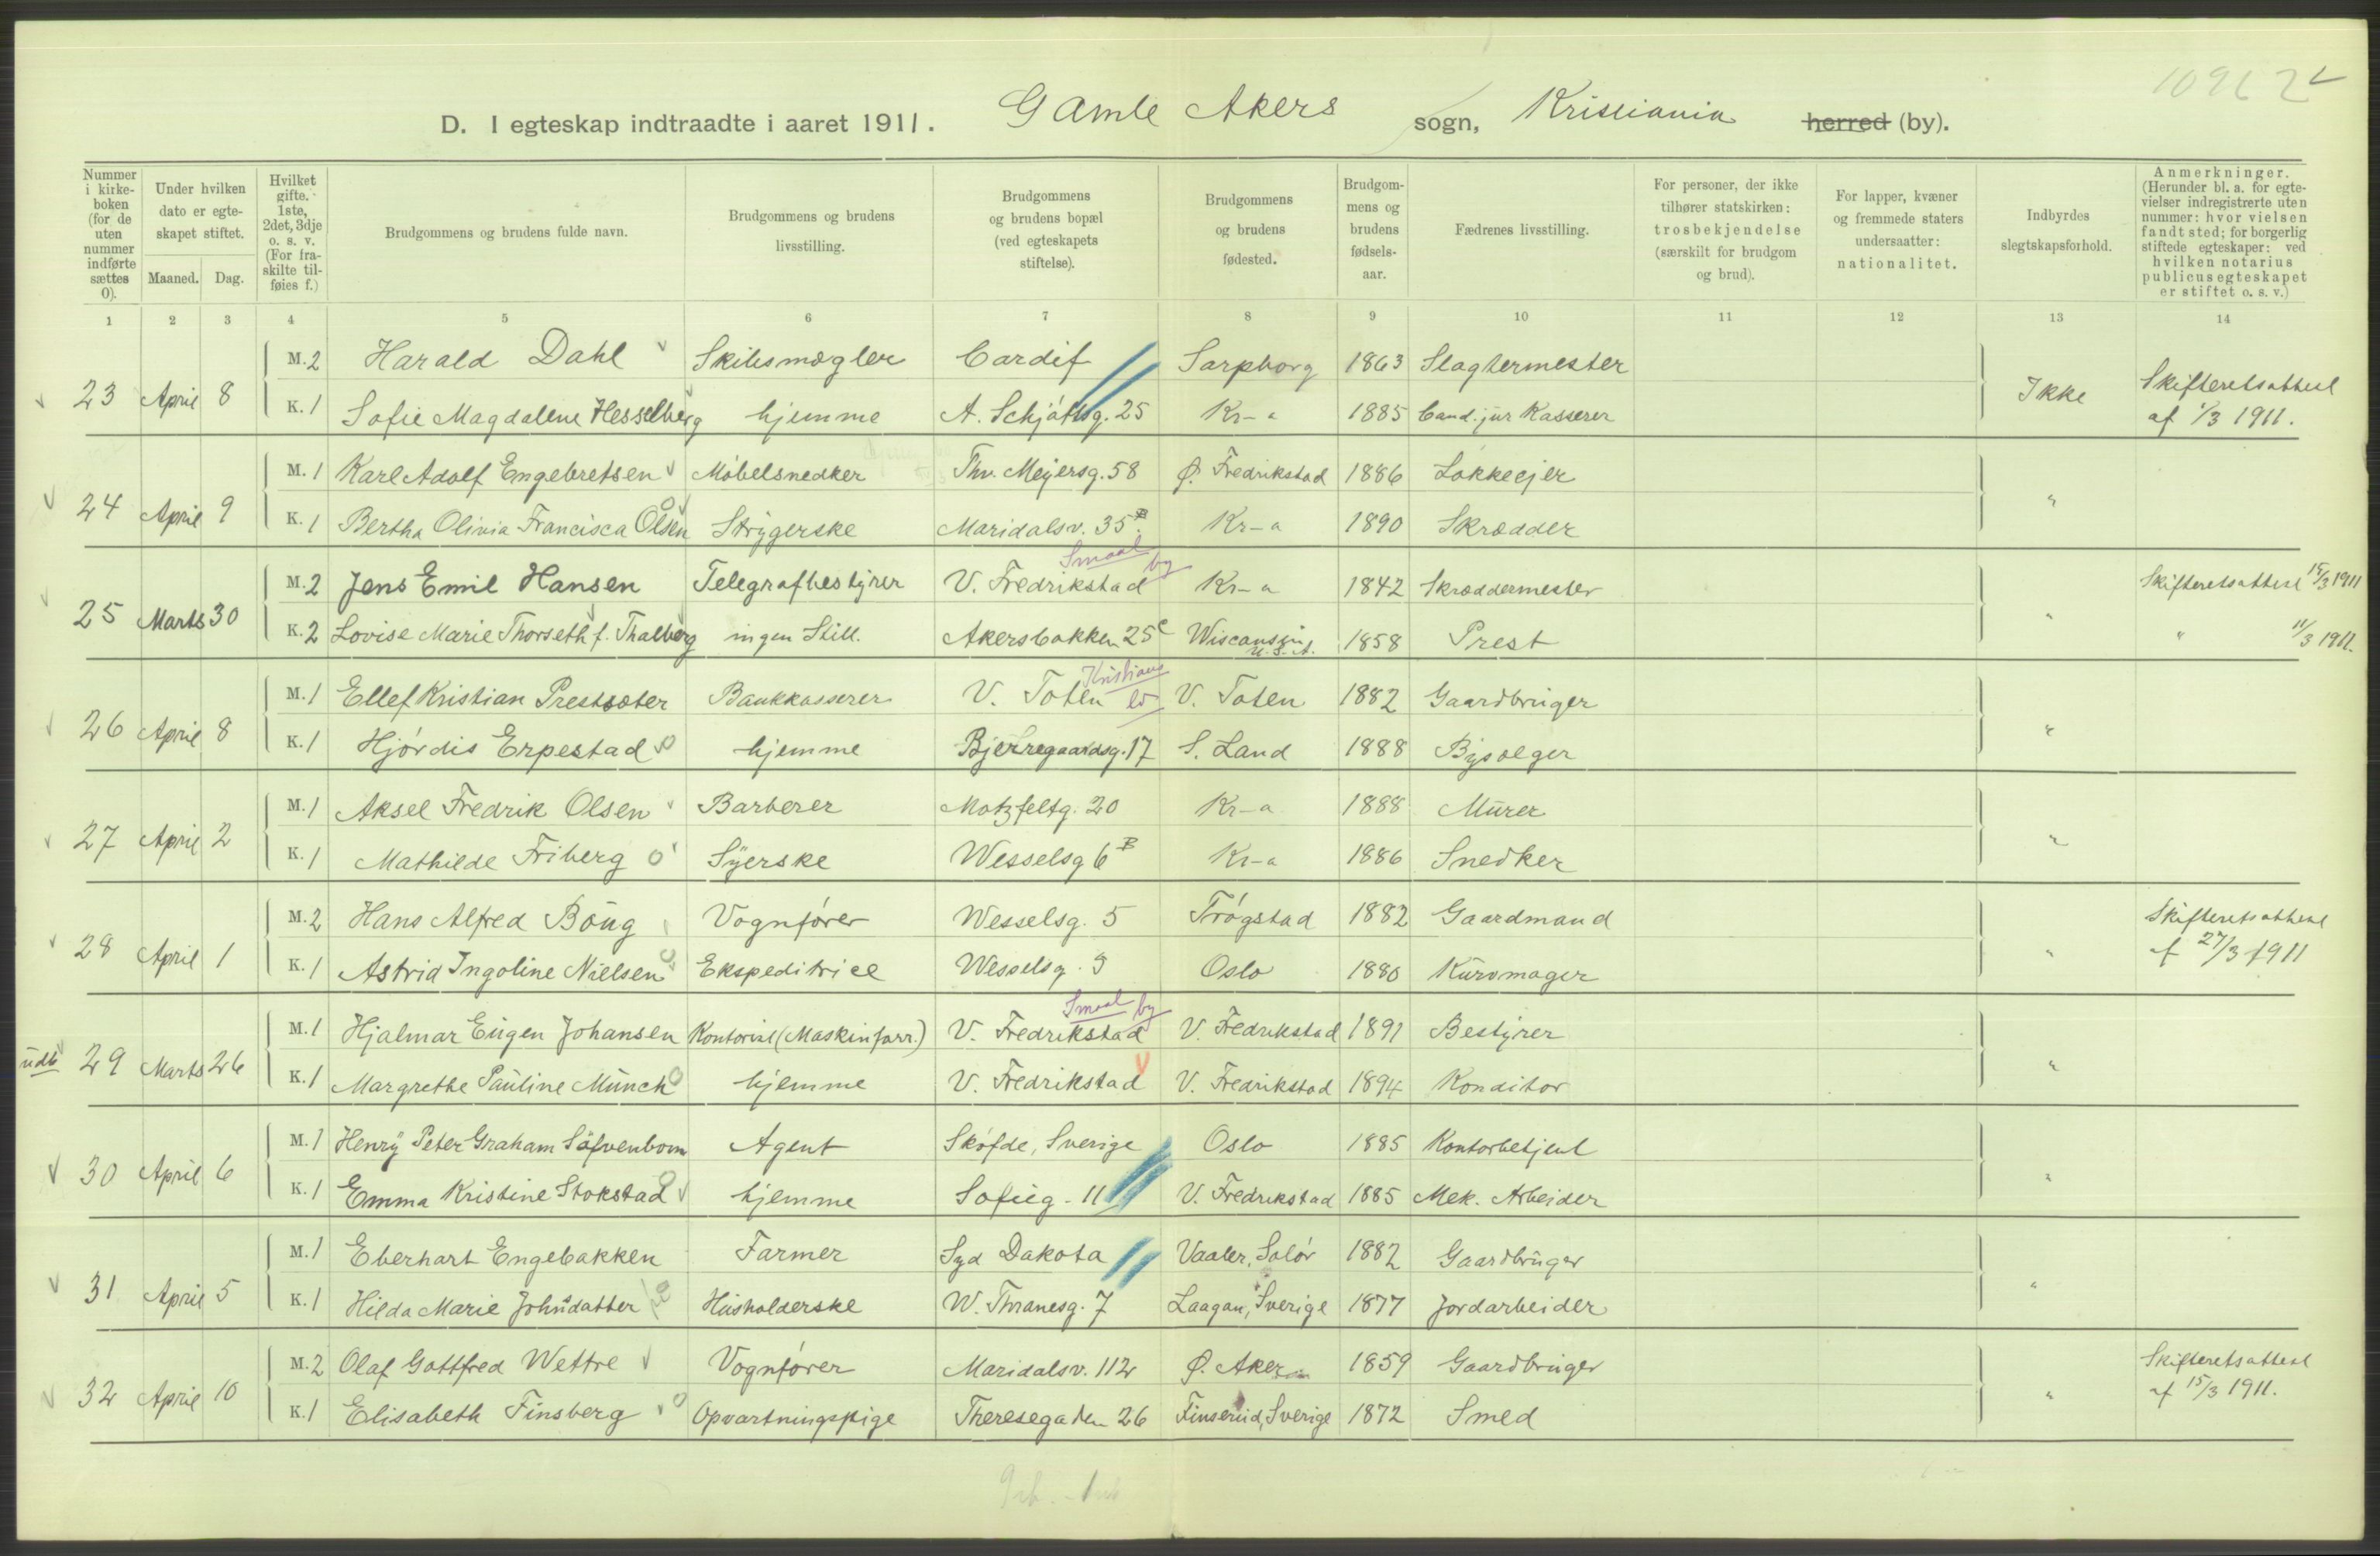 10962
D. I egteskap indtraadte i aaret 1911. Gamle Akers sogn, Kristiania herred (by).
Nummer i kirke-boken (for de uten nummer indførte sættes 0).
Under hvilken dato er egte-skapet stiftet.
Maaned. Dag.
Hvilket gifte. 1ste, 2det, 3dje o. s. v. (For fra-skilte til-føies f.)
Brudgommens og brudens fulde navn.
Brudgommens og brudens livsstilling.
Brudgommens og brudens bopæl (ved egteskapets stiftelse).
Brudgommens og brudens fødested.
Brudgom-mens og brudens fødsels-aar.
Fædrenes livsstilling.
For personer, der ikke tilhører statskirken: trosbekjendelse (særskilt for brudgom og brud).
For lapper, kvæner og fremmede staters undersaatter: nationalitet.
Indbyrdes slegtskapsforhold.
Anmerkninger. (Herunder bl. a. for egte-vielser indregistrerte uten nummer: hvor vielsen fandt sted; for borgerlig stiftede egteskaper: ved hvilken notarius publicus egteskapet er stiftet o. s. v.)
1 2 3 4 5 6 7 8 9 10 11 12 13 14
M. 2 Harald Dahl Skibsmægler Cardif Sarpborg 1863 Slagtermester
23 April 8 Ikke Skifteretsattest
K. 1 Sofie Magdalene Hesselberg hjemme A. Schjøttsg. 25 Kr-a 1885 Cand. jur Kasserer af 1/3 1911.
M. 1 Karl Adolf Engebretsen Møbelsnedker Thv. Meyersg. 58 Ø. Fredrikstad 1886 Løkkeejer
24 April 9 "
K. 1 Bertha Olivia Francisca Olsen Strygerske Maridalsv. 35 B. Kr-a 1890 Skrædder
Smaal by
M. 2 Jens Emil Hansen Telegrafbestyrer V. Fredrikstad Kr-a 1842 Skræddermester Skifteretsattest 15/3 1911
25 Marts 30 "
K. 2 Lovise Marie Thorseth f. Thalberg ingen Still. Akersbakken 25 c Wisconssin U.S.A. 1858 Prest " 11/3 1911.
Kristians
M. 1 Ellef Kristian Prestsæter Bankkasserer V. Toten V. Toten 1882 Gaardbruger
26 April 8 "
K. 1 Hjørdis Erpestad hjemme Bjerregaardsg. 17 S. Land 1888 Bysælger
M. 1 Aksel Fredrik Olsen Barberer Motzfeltg. 20 Kr-a 1888 Murer
27 April 2 "
K. 1 Mathilde Friberg Syerske Wesselsg 6 B Kr-a 1886 Snedker
M. 2 Hans Alfred Boug Vognfører Wesselsg. 5 Trøgstad 1882 Gaardmand Skifteretsattest
28 April 1 "
K. 1 Astrid Ingoline Nielsen Ekspeditrice Wesselsg. 5 Oslo 1880 Kurvmager af 27/3 1911
Smaal by
M. 1 Hjalmar Eugen Johansen Kontorist (Maskinforr.) V. Fredrikstad V. Fredrikstad 1891 Bestyrer
udb 29 Marts 26 "
K. 1 Margrethe Pauline Münch hjemme V. Fredrikstad V. Fredrikstad 1894 Konditor
M. 1 Henry Peter Graham Søfvenbom Agent Skøfde, Sverige Oslo 1885 Kontorbetjent
30 April 6 "
K. 1 Emma Kristine Stokstad hjemme Sofieg. 11 V. Fredrikstad 1885 Mek. Arbeider
M. 1 Eberhart Engebakken Farmer Syd Dakota Vaaler, Solør 1882 Gaardbruger
31 April 5 "
K. 1 Hilda Marie Johnsdatter Husholderske W. Thranesg. 7 Laagan, Sverige 1877 Jordarbeider
M. 2 Olaf Gottfred Wettre Vognfører Maridalsv. 112 Ø. Aker 1859 Gaardbruger Skifteretsattest
32 April 10 "
K. 1 Elisabeth Finsberg Opvartningspige Theresegaden 26 Finserud, Sverige 1872 Smed af 15/3 1911.